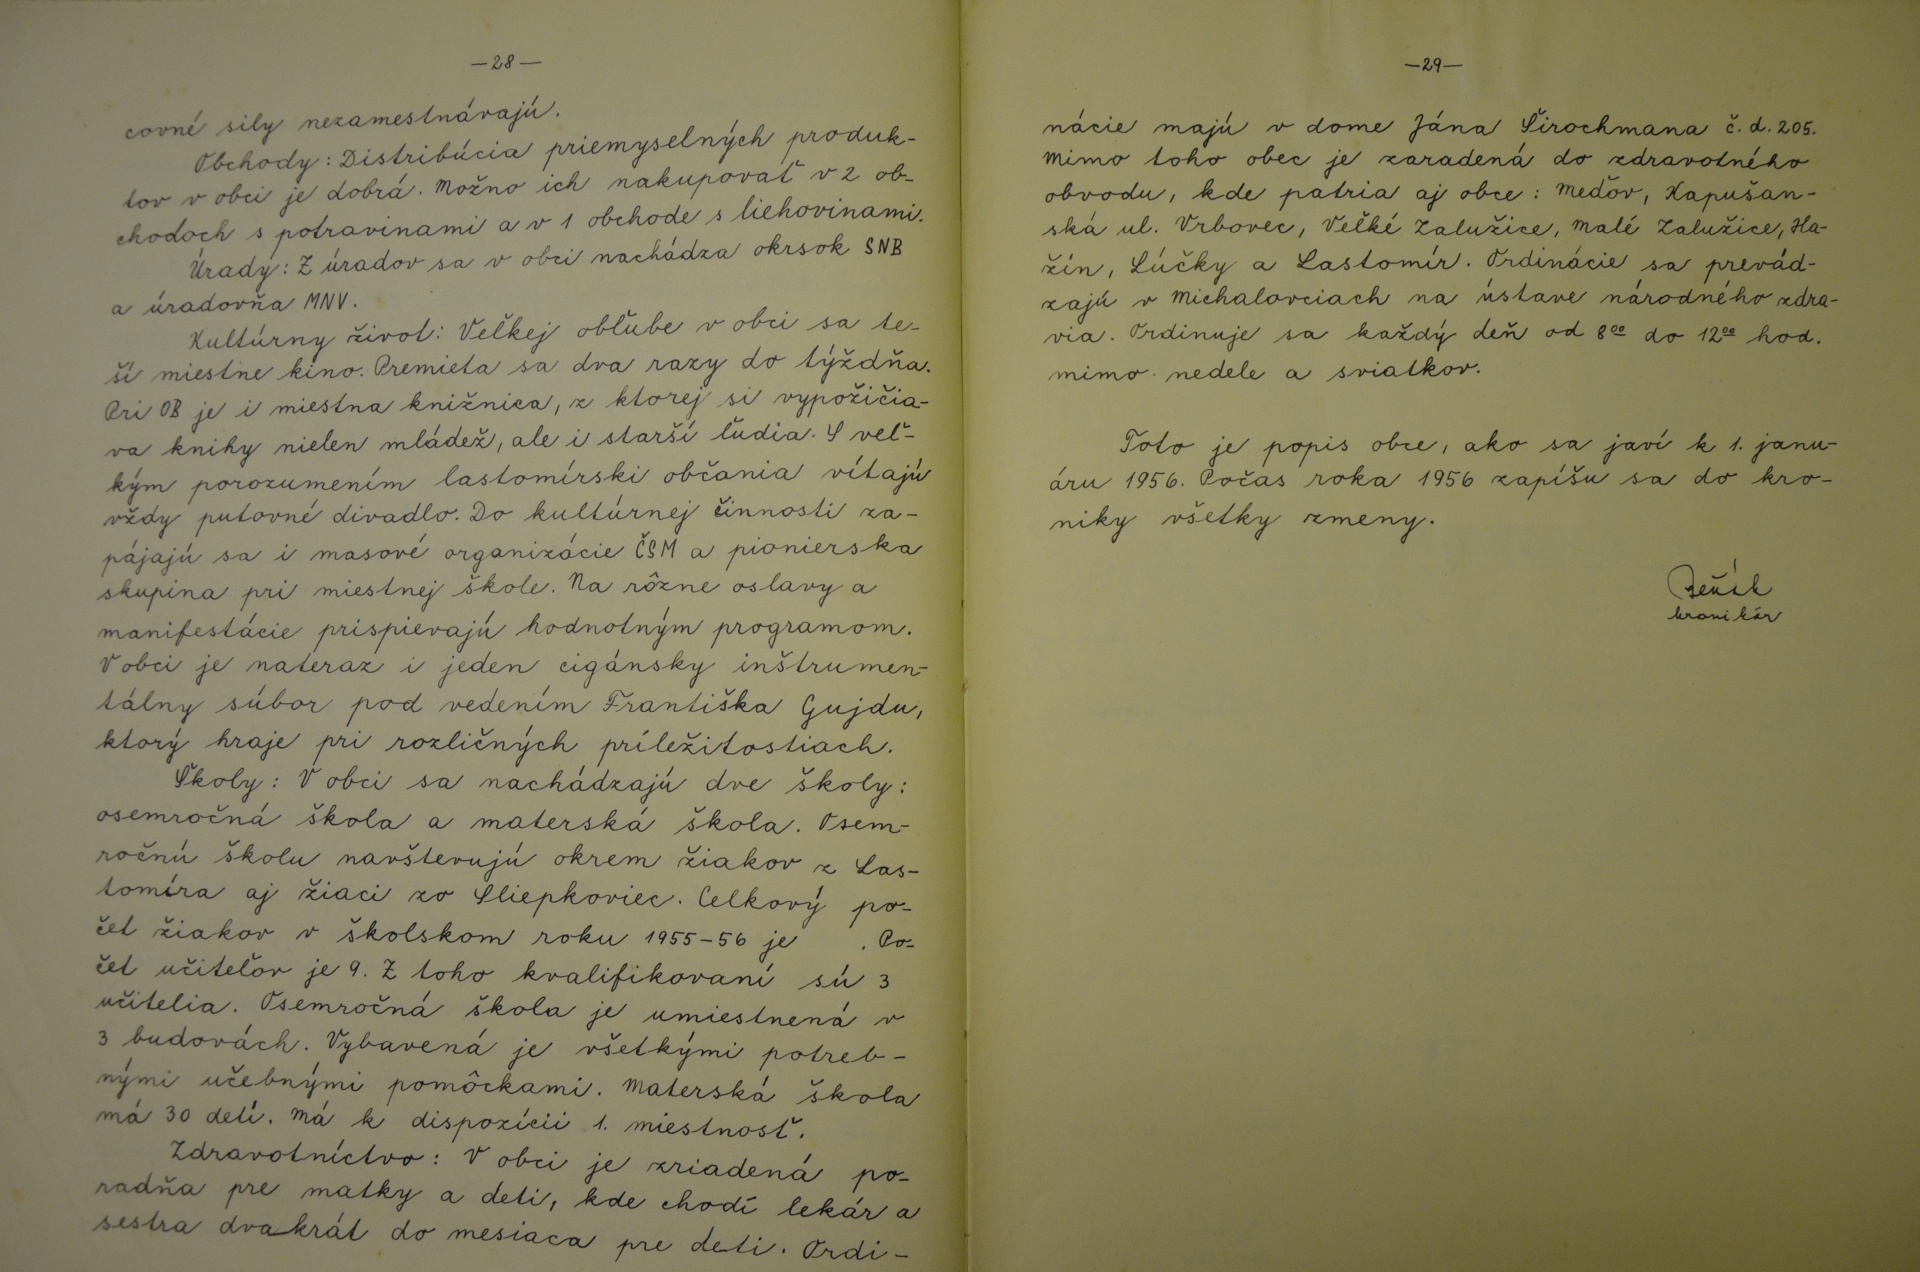 —28—
covné sily nezamestnávajú.
Obchody: Distribúcia priemyselných produk-
tov v obci je dobrá. Možno ich nakupovať v 2 ob-
chodoch s potravinami a v 1 obchode s liehovinami.
Úrady: Z úradov sa v obci nachádza okrsok SNB
a úradovňa MNV.
Kultúrny život: Veľkej obľube v obci sa te-
ší miestne kino. Premieta sa dva razy do týždňa.
Pri OB je i miestna knižnica, z ktorej si vypožičia-
va knihy nielen mládež, ale i starší ľudia. S veľ-
kým porozumením lastomírski občania vítajú
vždy putovné divadlo. Do kultúrnej činnosti za-
pájajú sa i masové organizácie ČSM a pionierska
skupina pri miestnej škole. Na rôzne oslavy a
manifestácie prispievajú hodnotným programom.
V obci je nateraz i jeden cigánsky inštrumen-
tálny súbor pod vedením Františka Gujdu,
ktorý hraje pri rozličných príležitostiach.
Školy: V obci sa nachádzajú dve školy:
osemročná škola a materská škola. Osem-
ročnú školu navštevujú okrem žiakov z Las-
tomíra aj žiaci zo Sliepkoviec. Celkový po-
čet žiakov v školskom roku 1955-56 je . Po-
čet učiteľov je 9. Z toho kvalifikovaní sú 3
učitelia. Osemročná škola je umiestnená v
3 budovách. Vybavená je všetkými potreb-
nými učebnými pomôckami. Materská škola
má 30 detí. Má k dispozícii 1. miestnosť.
Zdravotníctvo: V obci je zriadená po-
radňa pre matky a deti, kde chodí lekár a
sestra dvakrát do mesiaca pre deti. Ordi-
—29—
nácie majú v dome Jána Širochmana č. d. 205.
Mimo toho obec je zaradená do zdravotného
obvodu, kde patria aj obce: Meďov, Kapušan-
ská ul. Vrbovec, Veľké Zalužice, Malé Zalužice, Ha-
žín, Lúčky a Lastomír. Ordinácie sa prevád-
zajú v Michalovciach na ústave národného zdra-
via. Ordinuje sa každý deň od 8⁰⁰ do 12⁰⁰ hod.
mimo nedele a sviatkov.
Toto je popis obce, ako sa javí k 1. janu-
áru 1956. Počas roka 1956 zapíšu sa do kro-
niky všetky zmeny.
kronikár